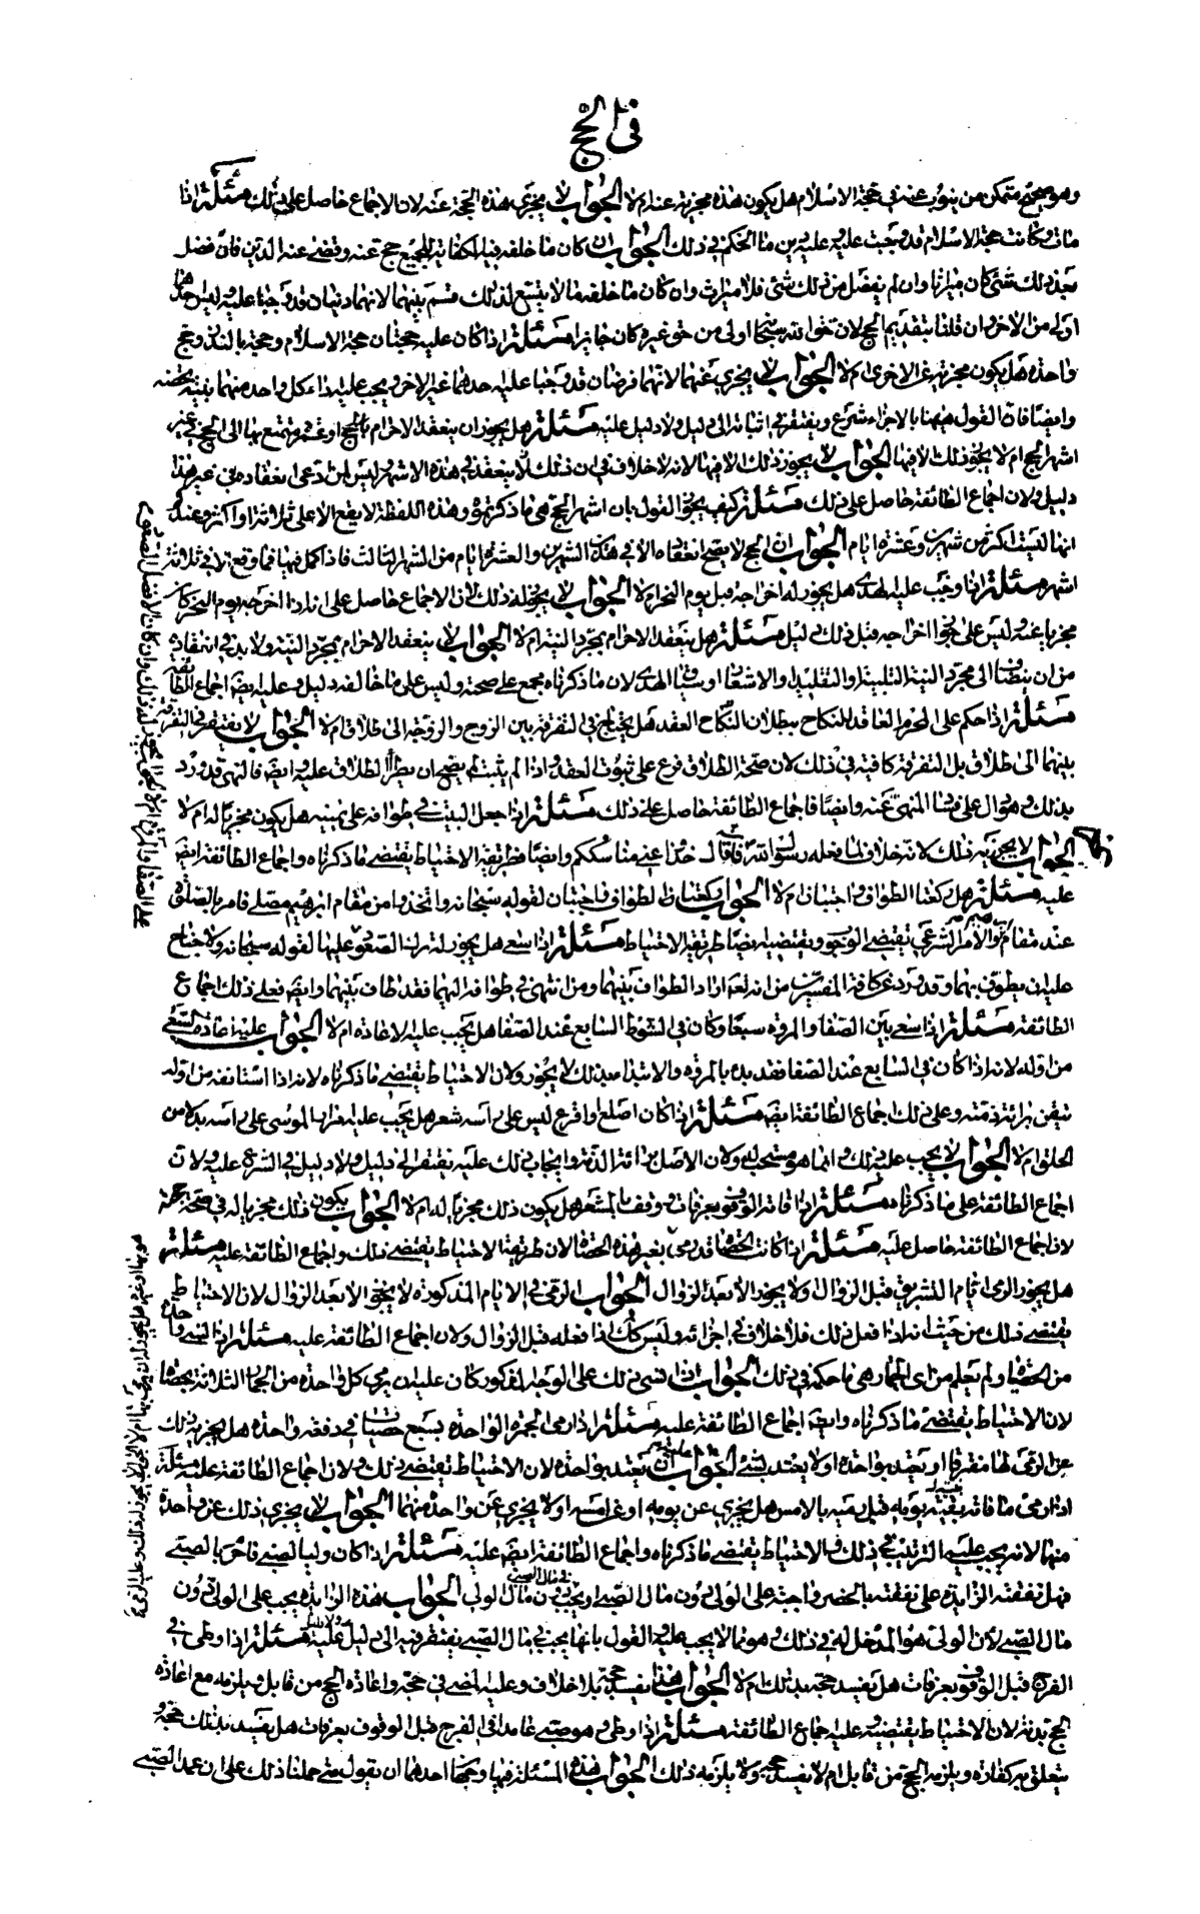 في الحج
وهو صحيح متمكن من ينوب عنه في حجة الاسلام هل يكون هذه مجزية عنه ام لا الجواب لا يجزى هذه الحجة عنه لان الاجماع حاصل على ذلك مسئلة اذا
مات وكانت حجة الاسلام قد وجبت عليه وعليه دين ما الحكم في ذلك الجواب ان كان ما خلفه فيه كفاية للجميع حج عنه وقضى عنه الدين فان فضل
بعد ذلك شئ كان ميراثا وان لم يفضل من ذلك شئ فلا ميراث وان كان ما خلفه مما لا يتسع لذلك قسم بينهما لانهما دينان قد وجبا عليه وليس احدهما
اولى من الاخر وان قلنا بتقديم الحج لان حق الله سبحانه اولى من حق غيره كان جايزا مسئلة اذا كان عليه حجتان حجة الاسلام وحجة بالنذر وحج
واحدة هل يكون مجزية عن الاخرى ام لا الجواب لا يجزى عنهما لانهما فرضان قد وجبا عليه احدهما غير الاخر ويجب عليه اداء كل واحد منهما بنية يخصه
وايضا فان القول هيهنا بالاجزاء شرع ويفتقر في اثباته الى دليل ولا دليل عليه مسئلة هل يجوز ان ينعقد الاحرام بالحج او عمرة يتمتع بها الى الحج في غير
اشهر الحج ام لا يجوز ذلك الا فيها الجواب لا يجوز ذلك الا فيها لانه لا خلاف في ان ذلك ينعقد في هذه الاشهر وليس لمن ادعى انعقاده في غيرها
دليل ولان اجماع الطائفة حاصل على ذلك مسئلة كيف يجوز القول بان اشهر الحج هي ما ذكرتموه وهذه اللفظة لا يقع الا على ثلاثة او اكثر وعندكم
انها ليست اكثر من شهرين وعشرة ايام الجواب ان الحج لا يصح انعقاده الا في هذين الشهرين والعشرة ايام من الشهر الثالث فاذا كمل فيها فما وقع الا في ثلاثة
اشهر مسئلة اذا وجب عليه الهدى هل يجوز له اخراجه قبل يوم النحر ام لا الجواب لا يجوز له ذلك لان الاجماع حاصل على انه اذا اخرجه يوم النحر كان
مجزيا عنه وليس على جواز اخراجه قبل ذلك دليل مسئلة هل ينعقد الاحرام بمجرد النية ام لا الجواب لا ينعقد الاحرام بمجرد النية ولا بد في انعقاده
من ان ينضاف الى مجرد النية التلبية او التقليد او الاشعار او سياق الهدى لان ما ذكرناه مجمع على صحته وليس على ما خالفه دليل وعليه ايضا اجماع الطائفة
مسئلة اذا حكم على المحرم العاقد للنكاح ببطلان النكاح العقد هل يحتاج في التفرقة بين الزوج والزوجة الى طلاق ام لا الجواب لا يفتقر في التفرقة
بينهما الى طلاق بل التفرقة كافية في ذلك لان صحة الطلاق فرع على ثبوت العقد واذا لم يثبت لم يصح ان يطرأ الطلاق عليه وايضا فالنهى قد ورد
بذلك وهو دال على فساد المنهى عنه وايضا فاجماع الطائفة حاصل على ذلك مسئلة اذا جعل البيت في طوافه على يمينه هل يكون مجزيا له ام لا
الجواب لا يجزيه ذلك لانه خلاف ما فعله رسول الله وقال خذوا عنى مناسككم وايضا فطريقة الاحتياط يقتضى ما ذكرناه واجماع الطائفة ايضا
عليه مسئلة هل ركعتا الطواف واجبتان ام لا الجواب ركعتا الطواف واجبتان لقوله سبحانه واتخذوا من مقام ابراهيم مصلى فامر بالصلوة
عند مقام والامر الشرعي يقتضى الوجوب ويقتضيه ايضا طريقة الاحتياط مسئلة اذا سعى هل يجوز له ترك الصعود عليهما لقوله سبحانه ولا جناح
عليه ان يطوف بهما وقد ورد عن كافة المفسرين من انه تعالى اراد الطواف بينهما ومن انتهى في طوافه اليهما فقد طاف بينهما وايضا فعلى ذلك اجماع
الطائفة مسئلة اذا سعى بين الصفا والمروة سبعا وكان في الشوط السابع عند الصفا هل يجب عليه الاعادة ام لا الجواب عليه اعادة السعى
من اوله لانه اذا كان في السابع عند الصفا فقد بدء بالمروة والابتداء بذلك لا يجوز ولان الاحتياط يقتضى ما ذكرناه لانه اذا استانفه من اوله
تيقن برائة ذمته وعلى ذلك اجماع الطائفة ايضا مسئلة اذا كان اصلع او اقرع ليس على رأسه شعر هل يجب عليه امرار الموسى على رأسه بدلا من
الحلق ام لا الجواب لا يجب عليه ذلك وانما هو مستحب له ولان الاصل برائة الذمة وايجاب ذلك عليه يفتقر الى دليل ولا دليل في الشرع عليه ولان
اجماع الطائفة على ما ذكرناه مسئلة اذا فاته الوقوف بعرفات ووقف بالمشعر هل يكون ذلك مجزيا له ام لا الجواب يكون ذلك مجزيا له في صحة حجة
لان اجماع الطائفة حاصل عليه مسئلة اذا كانت الحصاة قد رمى بها بغير هذه الحصاة لان طريقة الاحتياط يقتضى ذلك واجماع الطائفة عليه مسئلة
هل يجوز الرمى ايام التشريق قبل الزوال ولا يجوز الا بعد الزوال الجواب الرمى في الايام المذكورة لا يجوز الا بعد الزوال لان الاحتياط
يقتضى ذلك من حيث انه اذا فعل ذلك فلا خلاف في اجزائه وليس كذلك اذا فعله قبل الزوال ولان اجماع الطائفة عليه مسئلة اذا نسى واحدة
من الحصيات ولم يعلم من اى الجمار هى ما حكمه في ذلك الجواب اذا نسى ذلك على الوجه المذكور كان عليه ان يرمى كل واحدة من الجمار الثلاثة بحصاة
لان الاحتياط يقتضى ما ذكرناه وايضا اجماع الطائفة عليه مسئلة اذا رمى الجمرة الواحدة بسبع حصيات في دفعة واحدة هل يجزيه ذلك
عن الرمى لها متفرقا او يعتد بواحدة او لا يعتد بشئ الجواب ان يعتد بواحدة لان الاحتياط يقتضى ذلك ولان اجماع الطائفة عليه مسئلة
اذا رمى ما فاته بقية يومه قبل رميه بالامس هل يجزى عن يومه او عن امسه او لا يجزى عن واحد منهما الجواب لا يجزى ذلك عن واحدة
منهما لانه يجب عليه الترتيب في ذلك والاحتياط يقتضى ما ذكرناه واجماع الطائفة ايضا عليه مسئلة اذا كان ولى الصبى فاحرم بالصبى
فهل نفقته الزايدة على نفقته بالحضر واجبة على الولى دون مال الصبى او يجب في مال الصبى دون مال الولى الجواب هذه الزايدة يجب على الولى دون
مال الصبى لان الولى هو المدخل له في ذلك وهو مما لا يجب عليه والقول بانها يجب في مال الصبى يفتقر فيه الى دليل ولا دليل عليه مسئلة اذا وطى في
الفرج قبل الوقوف بعرفات هل يفسد حجه بذلك ام لا الجواب هذا يفسد حجه بلا خلاف وعليه المضى في حجه واعادة الحج من قابل ويلزمه مع اعادة
الحج بدنة لان الاحتياط يقتضيه وعليه اجماع الطائفة مسئلة اذا وطى وهو صبى عامدا في الفرج قبل الوقوف بعرفات هل يفسد بذلك حجه و
يتعلق به كفارة ويلزمه الحج من قابل ام لا يفسد حجه ولا يلزمه ذلك الجواب هذه المسئلة فيها وجهان احدهما ان نقول متى حملنا ذلك على ان عمد الصبى